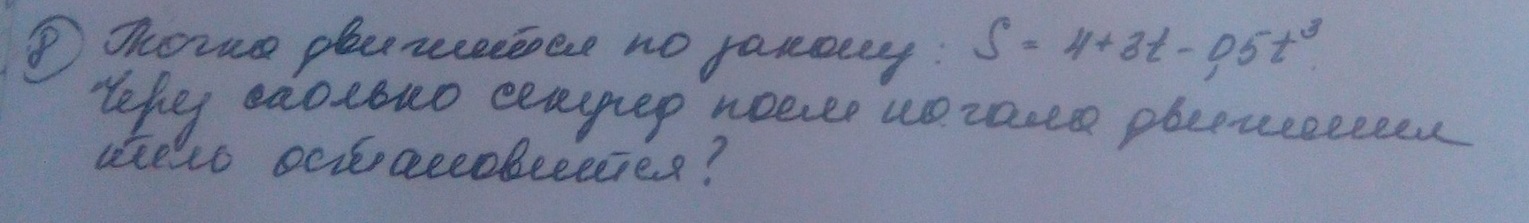 8) Точка движется по закону: S = 4+3t - 0,5t³.
Через сколько секунд после начала движения
тело остановится?